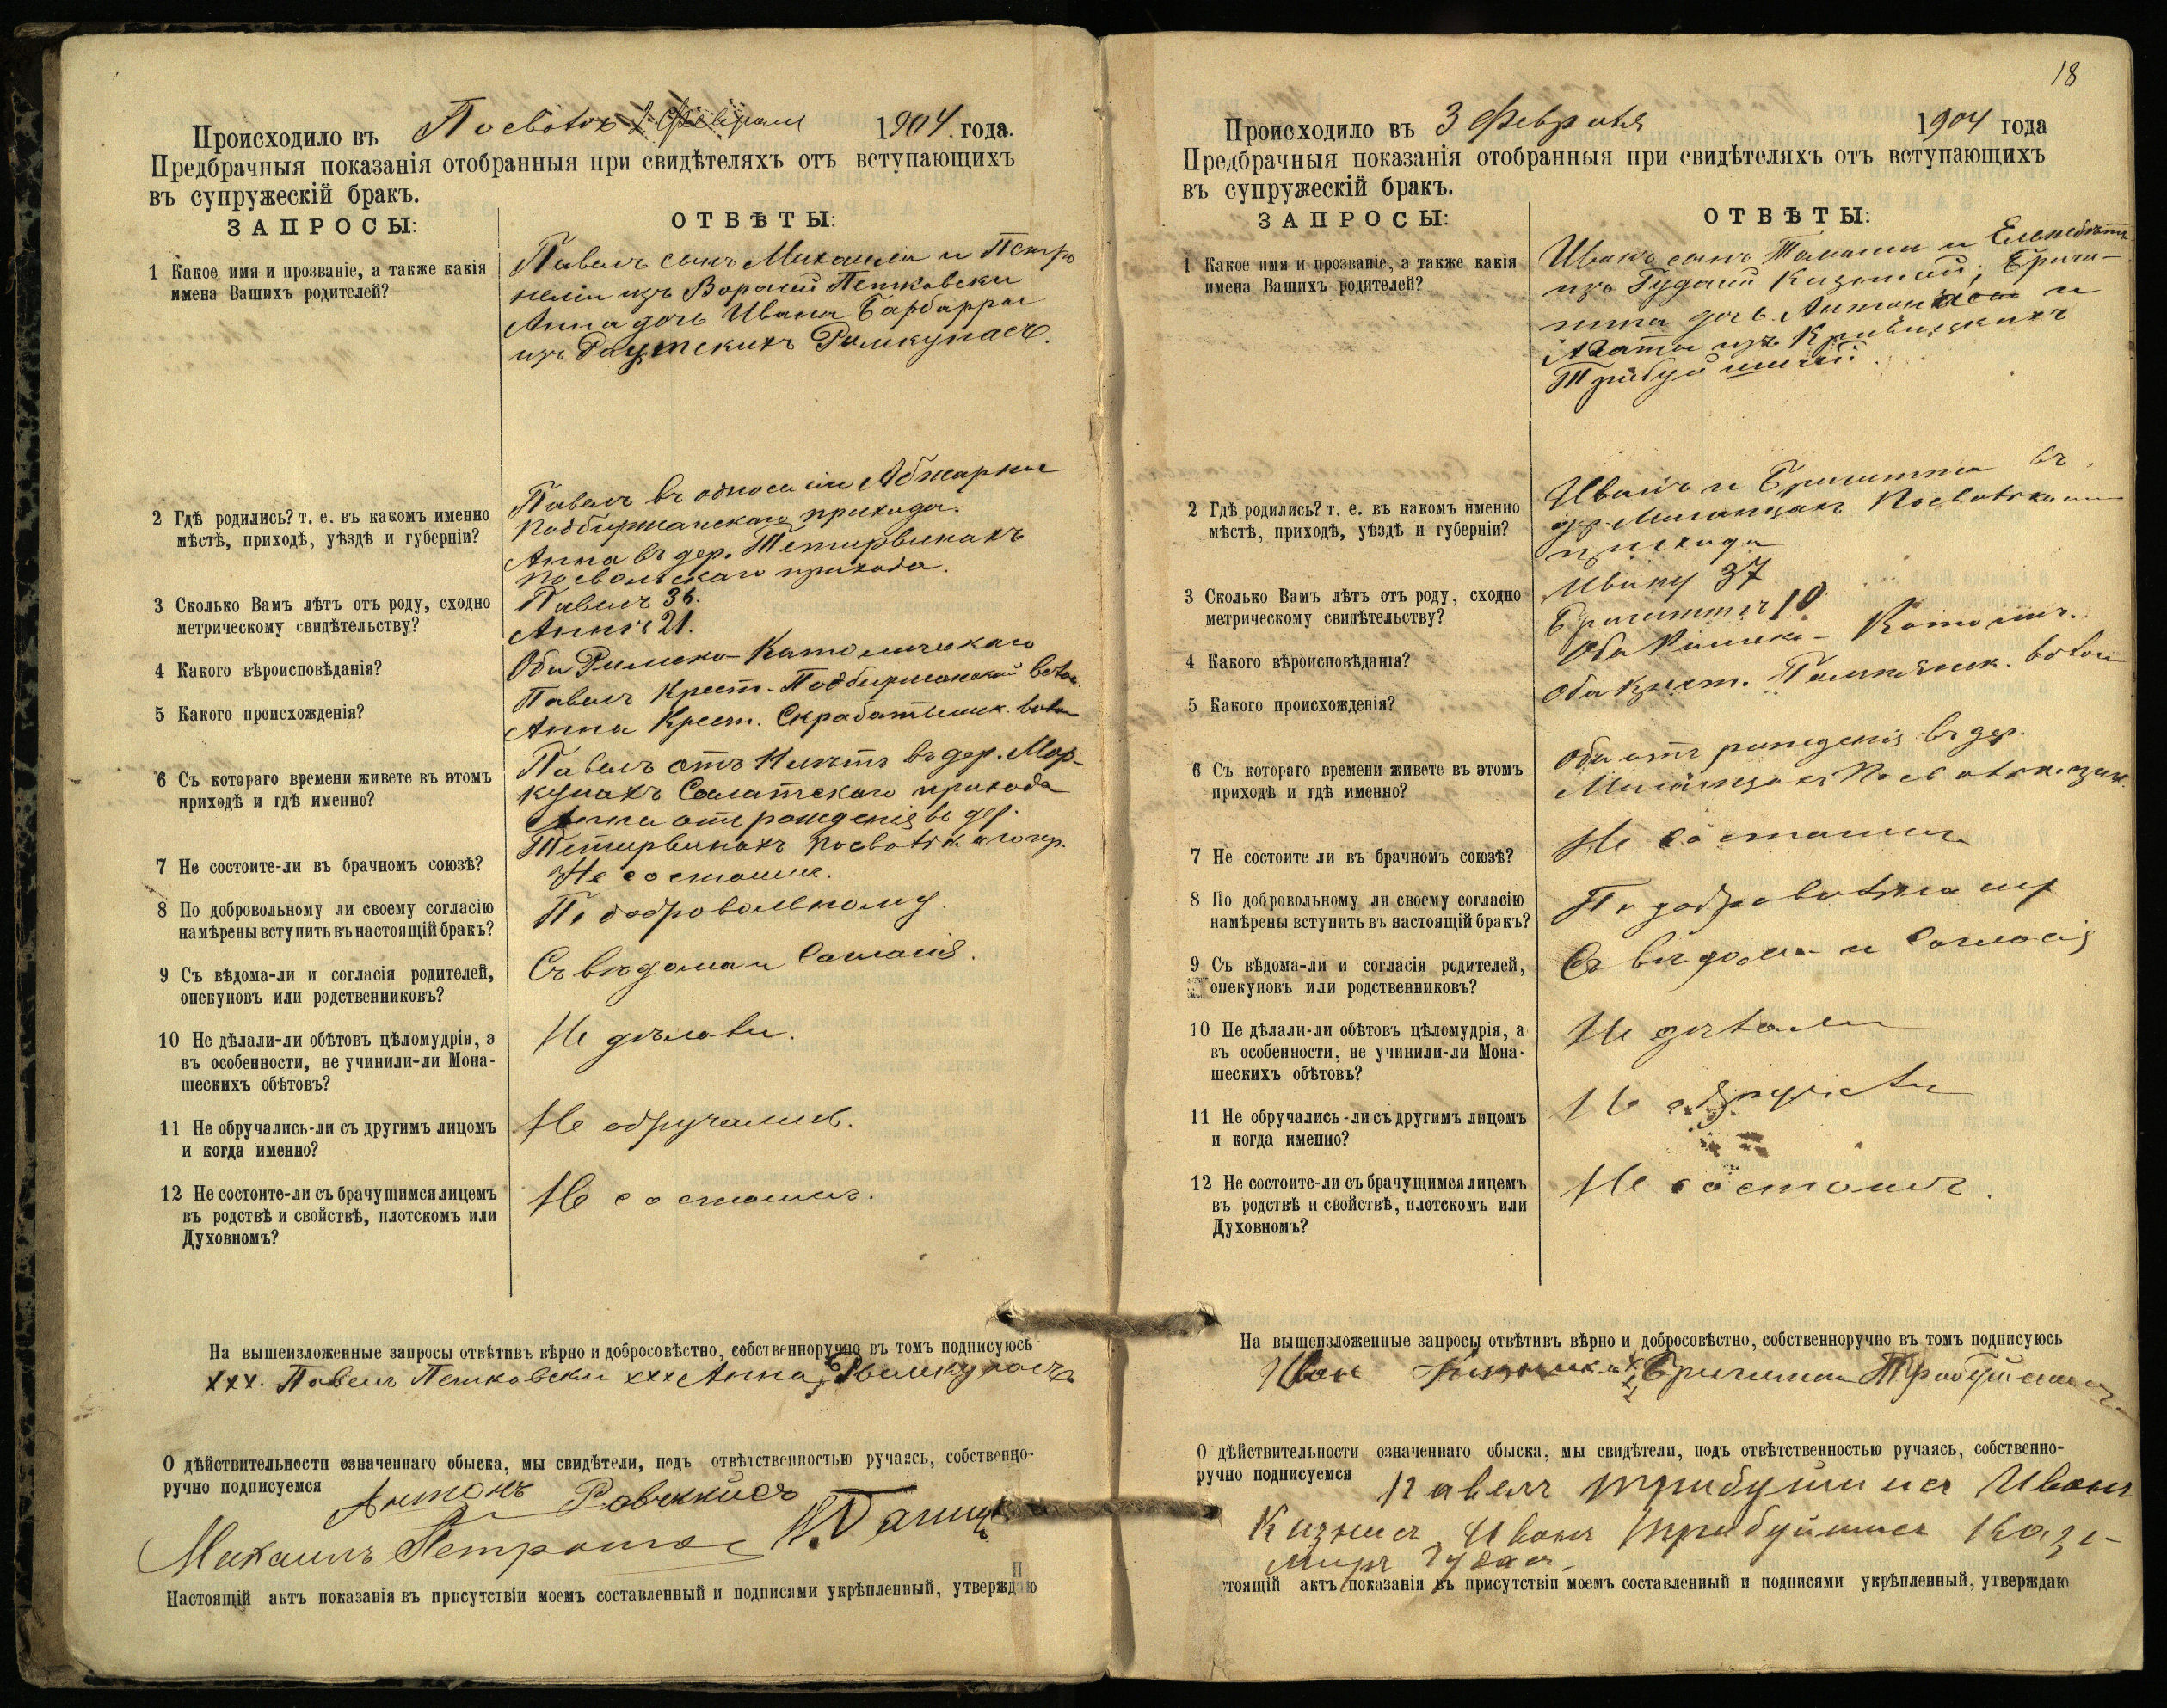 Происходило въ Посволь 1904 года.
Предбрачныя показанія отобранныя при свидѣтеляхъ отъ вступающихъ
въ супружескій бракъ.
ЗАПРОСЫ:
ОТВѢТЫ:
1 Какое имя и прозваніе, а также какія
имена Вашихъ родителей?
Павелъ сынъ Михаила и Петро
неліи изъ Петковски
Анна дочь Ивана Барбары
изъ Римкунасъ.
2 Гдѣ родились? т. е. въ какомъ именно
мѣстѣ, приходѣ, уѣздѣ и губерніи?
Павелъ въ околиціи
Подбиржанскаго прихода.
Анна въ дер. Тетирвинахъ
посвольскаго прихода.
3 Сколько Вамъ лѣтъ отъ роду, сходно
метрическому свидѣтельству?
Павелъ 36.
Аннѣ 21.
4 Какого вѣроисповѣданія?
Оба Римско-Католическаго
5 Какого происхожденія?
Павелъ Крест. Подбиржанской вол.
Анна Крест. Скрабатышск. вол
6 Съ котораго времени живете въ этомъ
приходѣ и гдѣ именно?
Павелъ отъ лѣтъ въ дер. Мор-
кунахъ Салатскаго прихода
Анна отъ рожденія въ дер.
Тетирвинахъ посвольскаго пр.
7 Не состоите-ли въ брачномъ союзѣ?
Не состоимъ.
8 По добровольному ли своему согласію
намѣрены вступить въ настоящій бракъ?
По добровольному.
9 Съ вѣдома-ли и согласія родителей,
опекуновъ или родственниковъ?
Съ вѣдома и согласія.
10 Не дѣлали-ли обѣтовъ цѣломудрія, а
въ особенности, не учинили-ли Мона-
шескихъ обѣтовъ?
Не дѣлали.
11 Не обручались-ли съ другимъ лицомъ
и когда именно?
Не обручались.
12 Не состоите-ли съ брачущимся лицемъ
въ родствѣ и свойствѣ, плотскомъ или
Духовномъ?
Не состоимъ.
На вышеизложенные запросы отвѣтивъ вѣрно и добросовѣстно, собственноручно въ томъ подписуюсь
ххх. Павелъ Петковски ххх Анна Римкунасъ
О дѣйствительности означеннаго обыска, мы свидѣтели, подъ отвѣтственностью ручаясь, собственно-
ручно подписуемся Антонъ
Михаилъ
Настоящій актъ показанія въ присутствіи моемъ составленный и подписями укрѣпленный, утверждаю
18
Происходило въ 3 Февраля 1904 года
Предбрачныя показанія отобранныя при свидѣтеляхъ отъ вступающихъ
въ супружескій бракъ.
ЗАПРОСЫ:
ОТВѢТЫ:
1 Какое имя и прозваніе, а также какія
имена Вашихъ родителей?
Иванъ сынъ и
изъ Бриги-
тта дочь и
Агаты изъ
2 Гдѣ родились? т. е. въ какомъ именно
мѣстѣ, приходѣ, уѣздѣ и губерніи?
Иванъ и Бригитта въ
дер. Посвольскаго
прихода
3 Сколько Вамъ лѣтъ отъ роду, сходно
метрическому свидѣтельству?
Ивану 37
Бригиттѣ
4 Какого вѣроисповѣданія?
Оба Римско-Католич.
5 Какого происхожденія?
Оба крест. волости
6 Съ котораго времени живете въ этомъ
приходѣ и гдѣ именно?
Оба отъ рожденія въ дер.
7 Не состоите ли въ брачномъ союзѣ?
Не состоимъ
8 По добровольному ли своему согласію
намѣрены вступить въ настоящій бракъ?
По добровольному
9 Съ вѣдома-ли и согласія родителей,
опекуновъ или родственниковъ?
Съ вѣдома и согласія
10 Не дѣлали-ли обѣтовъ цѣломудрія, а
въ особенности, не учинили-ли Мона-
шескихъ обѣтовъ?
Не дѣлали
11 Не обручались-ли съ другимъ лицомъ
и когда именно?
Не
12 Не состоите-ли съ брачущимся лицемъ
въ родствѣ и свойствѣ, плотскомъ или
Духовномъ?
Не состоимъ.
На вышеизложенные запросы отвѣтивъ вѣрно и добросовѣстно, собственноручно въ томъ подписуюсь
Иван
О дѣйствительности означеннаго обыска, мы свидѣтели, подъ отвѣтственностью ручаясь, собственно-
ручно подписуемся Павелъ Иванъ
Иванъ Кази-
миръ
стоящій актъ показанія въ присутствіи моемъ составленный и подписями укрѣпленный, утверждаю